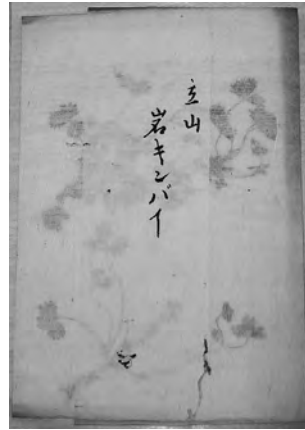 立山
岩キンバイ